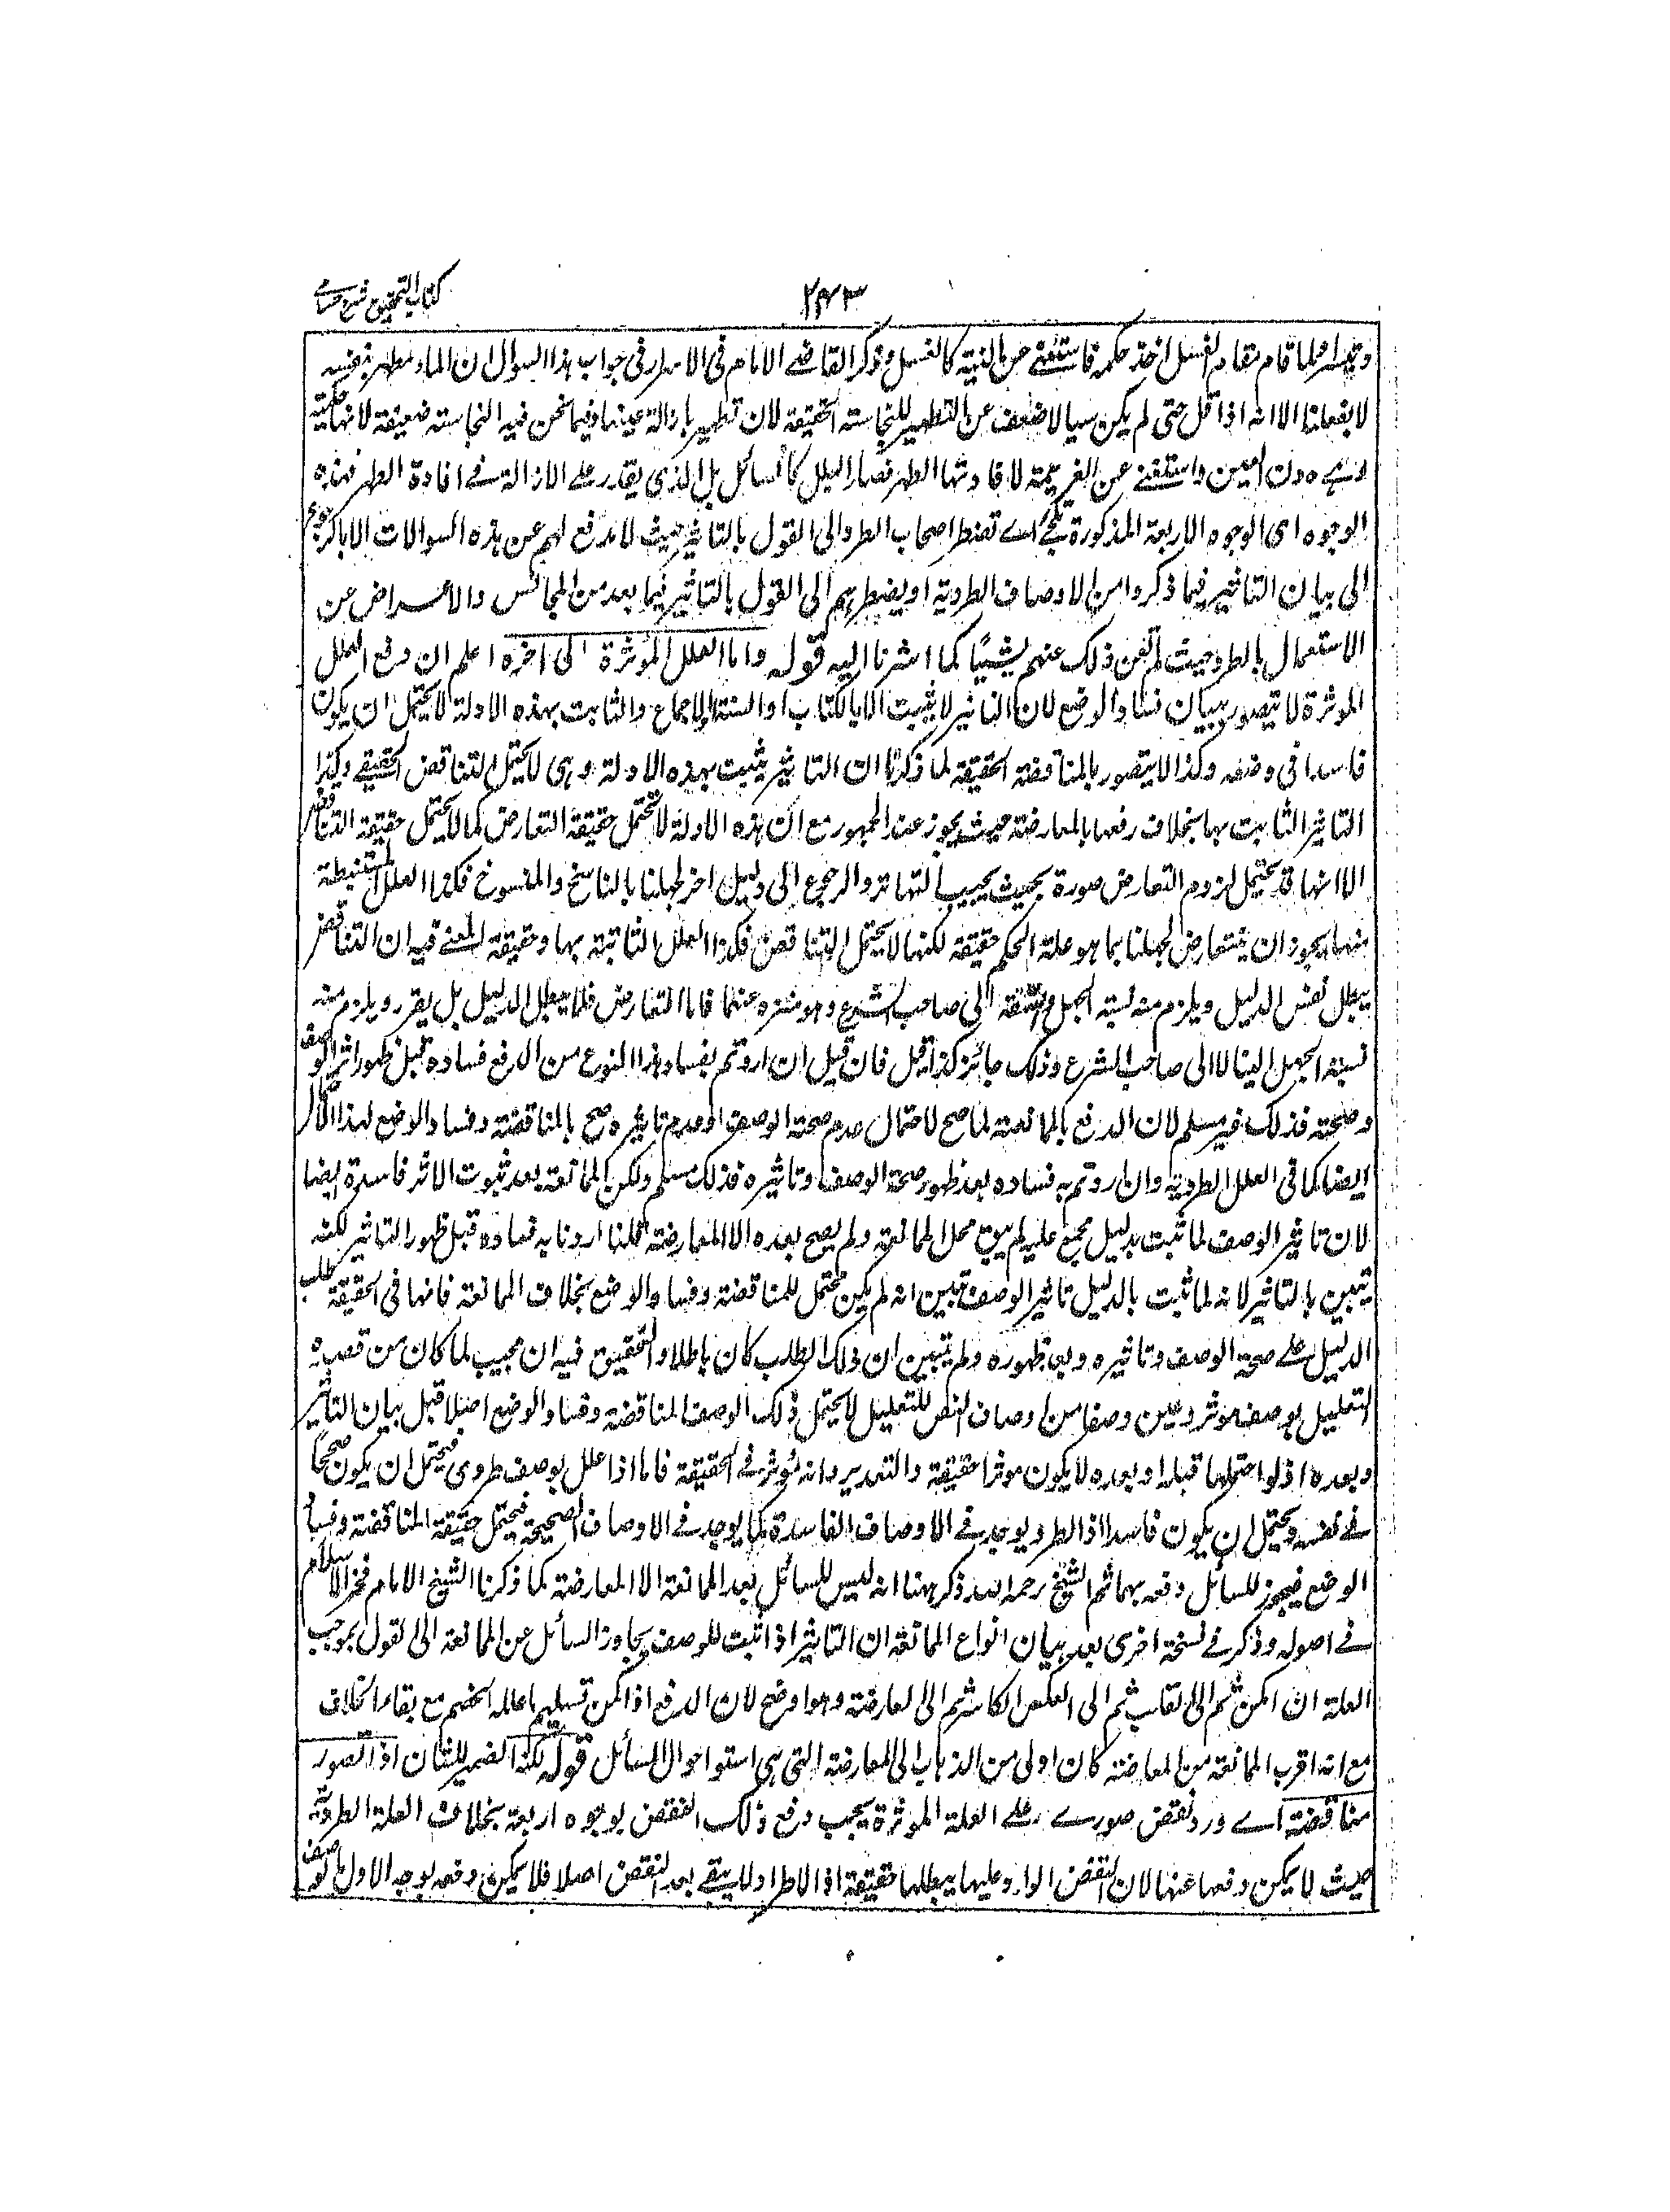 كتاب التحقيق شرح حسامى
٢٤٣
وتيسرا فلما قام مقام الغسل اخذ حكمه فاستغنى عن النية كالغسل وذكر القاضى الامام فى الاسرار فى جواب هذا السوال ان الماء مطهر بنفسه
لا بفعلنا الا انه اذا قل حتى لم يكن سيالا ضعف عن التطهير للنجاسة الحقيقة لان تطهيرها بازالة عينها وفيما نحن فيه النجاسة ضعيفة لانها حكمية
وهى دون العين واستغنى عن العزيمة لافادتها الطهر فصار البلل كالسائل بل الذى يقدر على الازالة فى افادة الطهر فهذه
الوجوه اى الوجوه الاربعة المذكورة تلجئ اى تضطر اصحاب الطرد الى القول بالتاثير حيث لا مدفع لهم عن هذه السوالات الا بالرجوع
الى بيان التاثير فيما ذكروا من الاوصاف الطردية او يضطرهم الى القول بالتاثير فيما بعد من المجالس والاعراض عن
الاستعمال بالطرد حيث لم يغن ذلك عنهم شيئا كما اشرنا اليه قوله واما العلل المؤثرة الى اخره اعلم ان دفع العلل
المؤثرة لا يتصور ببيان فساد الوضع لان التاثير لا يثبت الا بالكتاب او السنة او الاجماع والثابت بهذه الادلة لا يحتمل ان يكون
فاسدا فى وضعه وكذا لا يتصور بالمناقضة الحقيقة لما ذكرنا ان التاثير يثبت بهذه الادلة وهى لا يحتمل التناقض الحقيقى وكذا
التاثير الثابت بها بخلاف دفعها بالمعارضة حيث يجوز عند الجمهور مع ان هذه الادلة لا تحتمل حقيقة التعارض كما لا يحتمل حقيقة التناقض
الا انها قد يحتمل لزوم التعارض صورة بحيث يجب التهاتر والرجوع الى دليل اخر لجهلنا بالناسخ والمنسوخ فكذا العلل المستنبطة
منها يجوز ان يتعارض لجهلنا بما هو علة الحكم حقيقة لكنها لا يحتمل التناقض فكذا العلل الثابتة بها وحقيقة المعنى فيه ان التناقض
يبطل نفس الدليل ويلزم منه نسبة الجهل والسفه الى صاحب الشرع وهو منزه عنهما فاما التعارض فلا يبطل الدليل بل يقرر ويلزم منه
نسبة الجهل الينا لا الى صاحب الشرع وذلك جائز كذا قيل فان قيل ان اردتم بفساد هذا النوع من الدفع فساده قبل ظهور اثر الوصف
وصحته فذلك غير مسلم لان الدفع بالممانعة لما صح لاحتمال عدم صحة الوصف او عدم تاثيره صح بالمناقضة وفساد الوضع لهذا الاحتمال
ايضا كما فى العلل الطردية وان اردتم به فساده بعد ظهور صحة الوصف وتاثيره فذلك مسلم ولكن الممانعة بعد ثبوت الاثر فاسدة ايضا
لان تاثير الوصف لما ثبت بدليل مجمع عليه لم يبق محل الممانعة ولم يصح بعده الا المعارضة قلنا اردنا به فساده قبل ظهور التاثير لكنه
تبين بالتاثير لانه لما ثبت بالدليل تاثير الوصف تبين انه لم يكن محتمل للمناقضة وفساد الوضع بخلاف الممانعة فانها فى الحقيقة طلب
الدليل على صحة الوصف وتاثيره وبعد ظهوره ولم تبين ان ذلك الطلب كان باطلا والتحقيق فيه ان مجيب لما كان من قصده
التعليل بوصف مؤثر وعين وصفا من اوصاف النص للتعليل لا يحتمل ذلك الوصف المناقضة وفساد الوضع اصلا قبل بيان التاثير
وبعده اذ لو احتملهما قبله او بعده لا يكون موثرا حقيقة والتقدير انه مؤثر فى الحقيقة فاما اذا علل بوصف طردى فيحتمل ان يكون صحيحا
فى نفسه ويحتمل ان يكون فاسدا اذ الطرد يوجد فى الاوصاف الفاسدة كما يوجد فى الاوصاف الصحيحة فيحتمل حقيقة المناقضة وفساد
الوضع فيجوز للسائل دفعه بهما ثم الشيخ رحمه الله ذكر ههنا انه ليس للسائل بعد الممانعة الا المعارضة كما ذكرنا الشيخ الامام فخر الاسلام
فى اصوله وذكر فى نسخة اخرى بعد بيان انواع الممانعة ان التاثير اذا ثبت للوصف يجاوز السائل عن الممانعة الى القول بموجب
العلة ان امكن ثم الى القلب ثم الى العكس الكاسر ثم الى المعارضة وهو اوضح لان الدفع اذا امكن تسليم ما علله الخصم مع بقاء الخلاف
مع انه اقرب الممانعة من المعارضة كان اولى من الذهاب الى المعارضة التى هى اسوء احوال السائل قوله لكنه الضمير للشان اذا تصور
مناقضة اى ورد نقض صورى على العلة المؤثرة يجب دفع ذلك النقض بوجوه اربعة بخلاف العلة الطردية
حيث لا يمكن دفعها عنها لان النقض الوارد عليها يبطلها حقيقة اذ الاطراد لا يبقى بعد النقض اصلا فلا يمكن دفعه بوجه الاول بالوصف